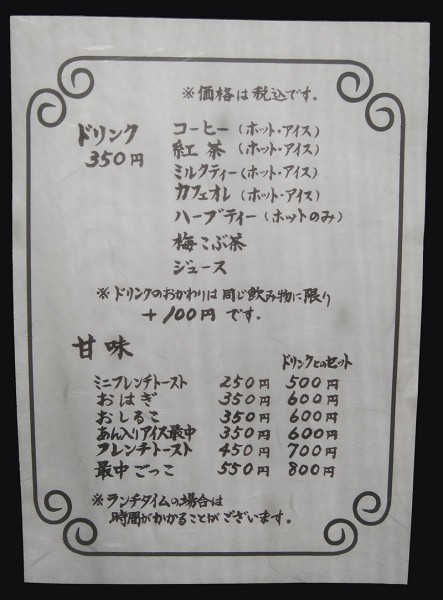 ※価格は税込です。
ドリンク 350円
コーヒー(ホット・アイス)
紅茶(ホット・アイス)
ミルクティー(ホット・アイス)
カフェオレ(ホット・アイス)
ハーブティー(ホットのみ)
梅こぶ茶
ジュース
※ドリンクのおかわりは同じ飲み物に限り
+100円です。
甘味 ドリンクとのセット
ミニフレンチトースト 250円 500円
おはぎ 350円 600円
おしるこ 350円 600円
あん入りアイス最中 350円 600円
フレンチトースト 450円 700円
最中ごっこ 550円 800円
※ランチタイムの場合は
時間がかかることがございます。